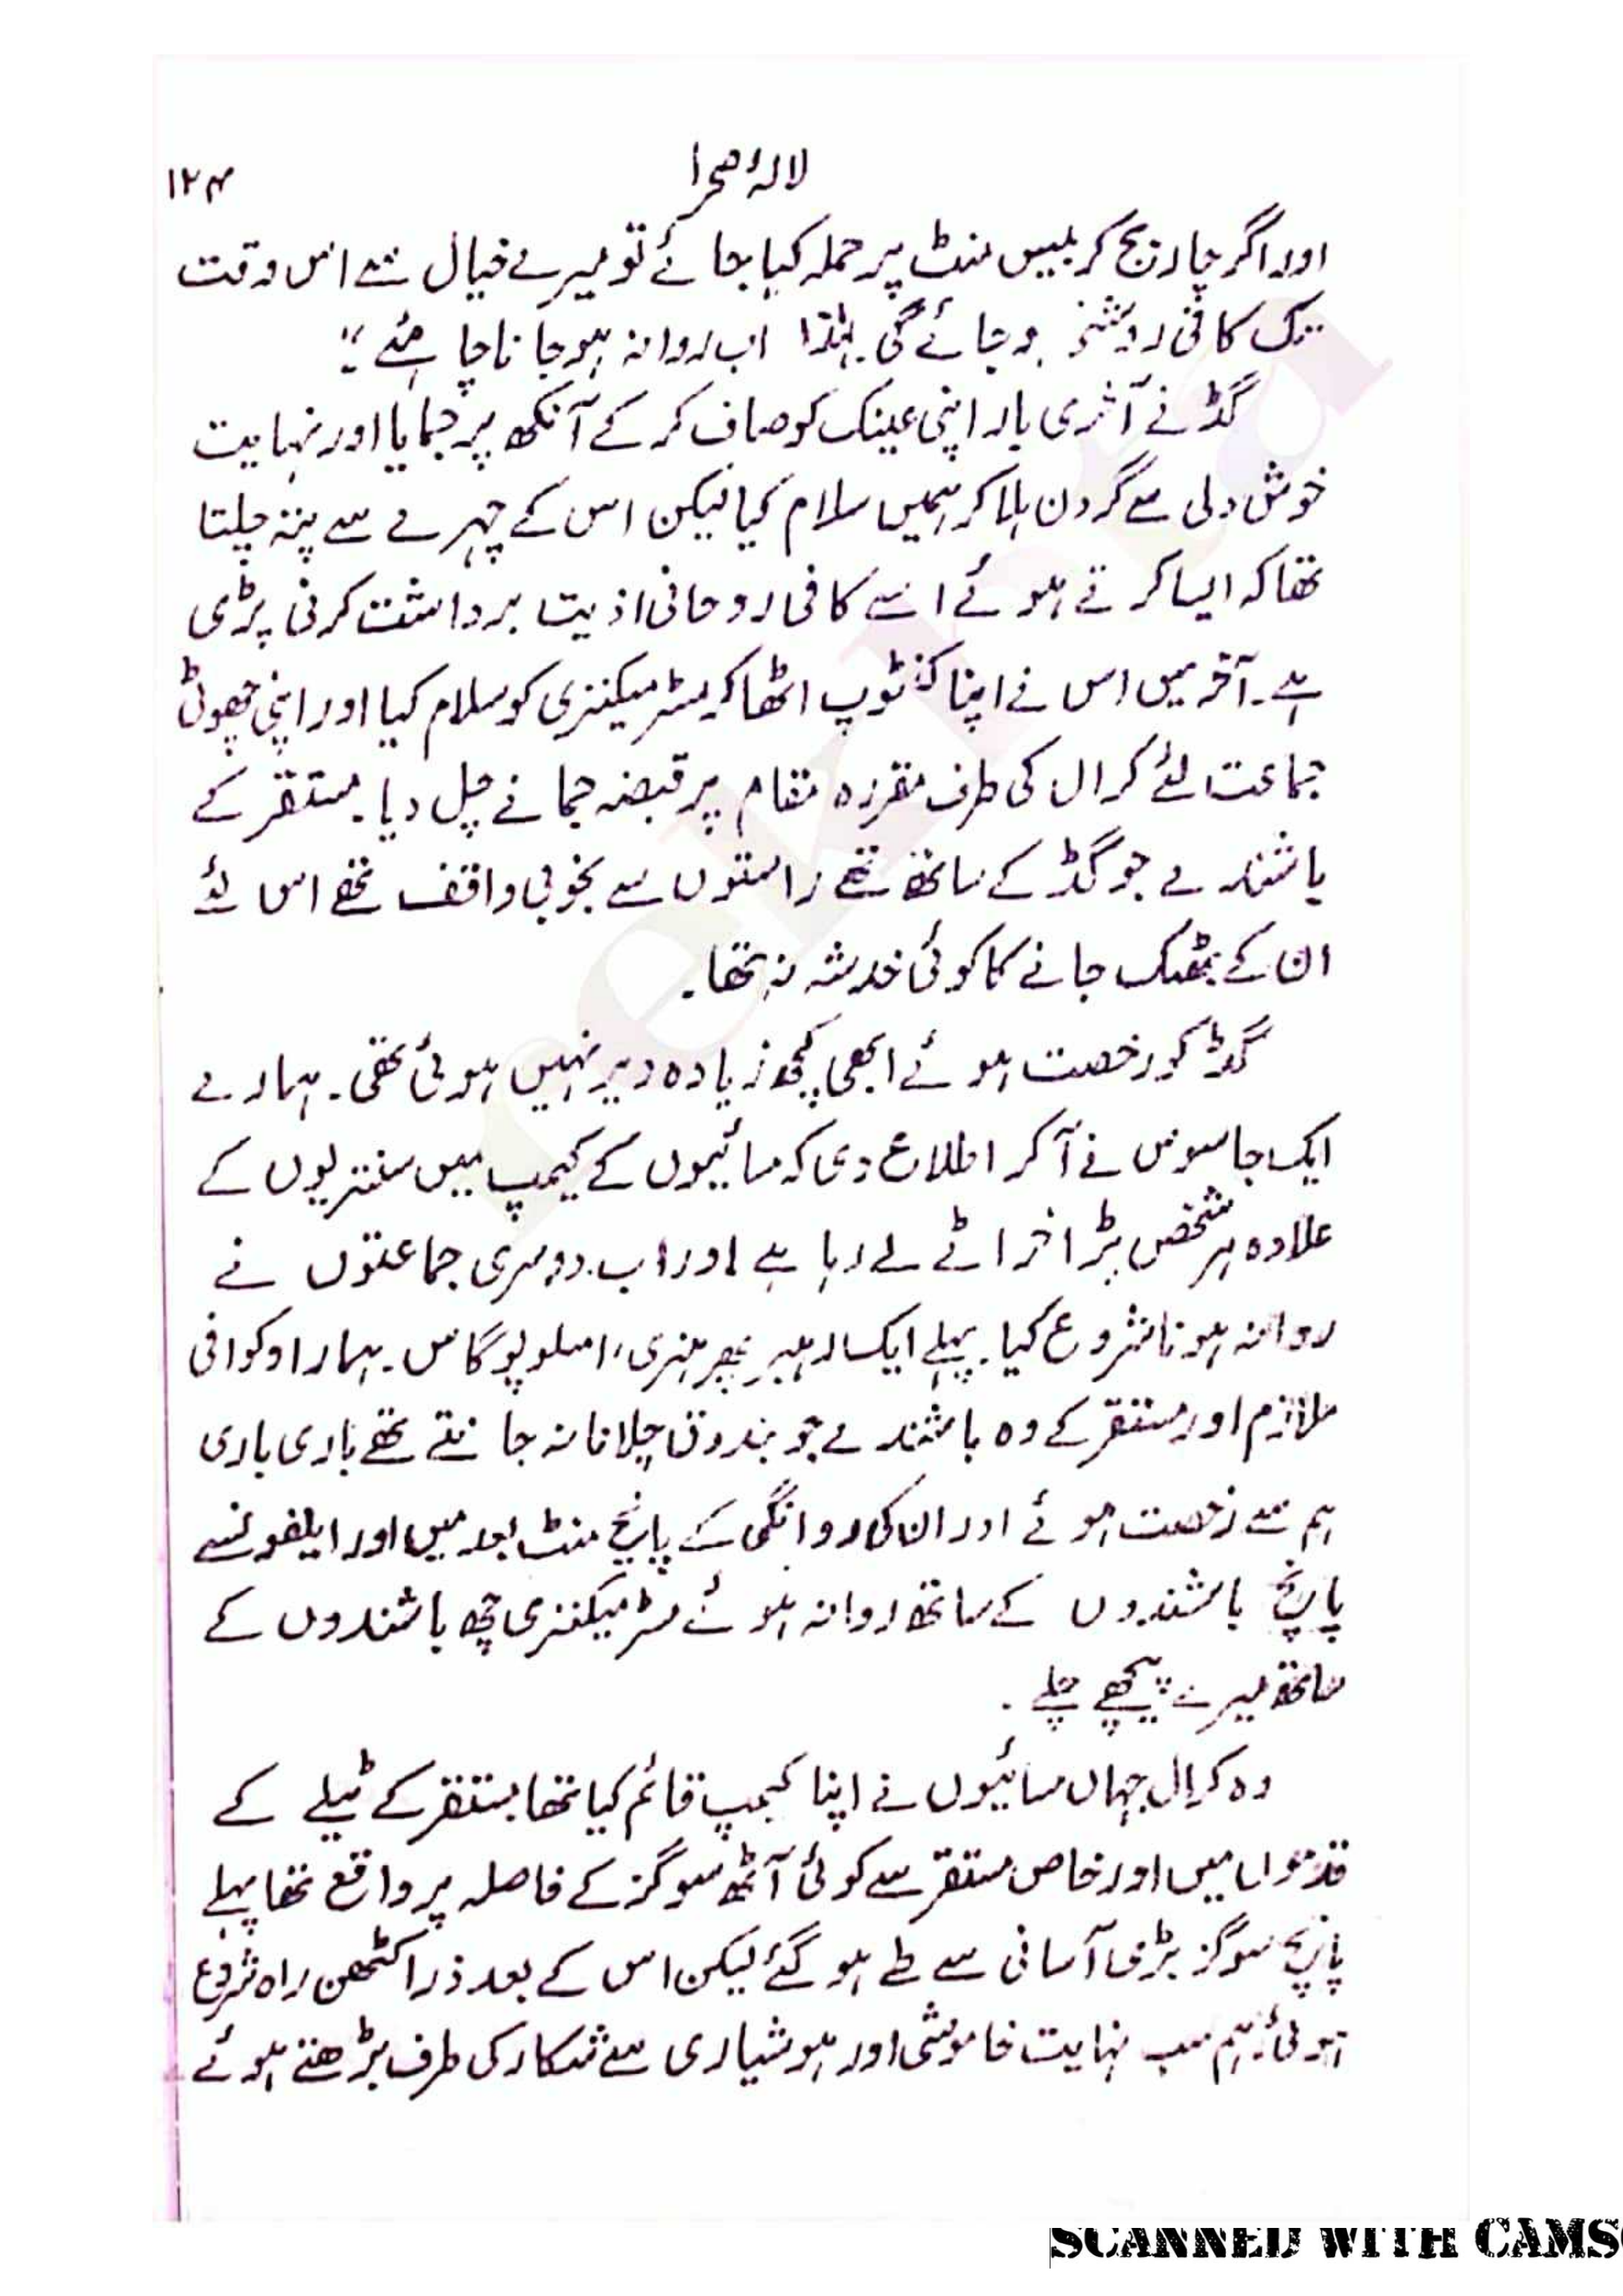 لالۂ صحرا ۱۲۴
اور اگر چار بج کر بیس منٹ پر حملہ کیا جائے تو میرے خیال سے اس وقت
تک کافی روشنی ہو جائے گی۔ لہٰذا اب روانہ ہو جانا چاہئے"۔
گڈ نے آخری بار اپنی عینک کو صاف کر کے آنکھ پر جمایا اور نہایت
خوش دلی سے گردن ہلا کر ہمیں سلام کیا لیکن اس کے چہرے سے پتہ چلتا
تھا کہ ایسا کرتے ہوئے اسے کافی روحانی اذیت برداشت کرنی پڑی
ہے۔ آخر میں اس نے اپنا کنٹوپ اٹھا کر مسٹر میکنزی کو سلام کیا اور اپنی چھوٹی
جماعت لئے کرال کی طرف مقررہ مقام پر قبضہ جمانے چل دیا۔ مستقر کے
باشندے جو گڈ کے ساتھ تھے راستوں سے بخوبی واقف تھے اس لئے
ان کے بھٹک جانے کا کوئی خدشہ نہ تھا۔
گڈ کو رخصت ہوئے ابھی کچھ زیادہ دیر نہیں ہوئی تھی۔ ہمارے
ایک جاسوس نے آ کر اطلاع دی کہ مسائیوں کے کیمپ میں سنتریوں کے
علاوہ ہر شخص پڑا خراٹے لے رہا ہے اور اب دوسری جماعتوں نے
روانہ ہونا شروع کیا۔ پہلے ایک رہبر پھر ہنری، امسلوپوگاس۔ ہمارا وکوافی
ملازم اور مستقر کے وہ باشندے جو بندوق چلانا نہ جانتے تھے باری باری
ہم سے رخصت ہوئے اور ان کی روانگی کے پانچ منٹ بعد میں اور ایلفونسے
پانچ باشندوں کے ساتھ روانہ ہوئے مسٹر میکنزی چھ باشندوں کے
ساتھ میرے پیچھے چلے۔
وہ کرال جہاں مسائیوں نے اپنا کیمپ قائم کیا تھا مستقر کے ٹیلے کے
قدموں میں اور خاص مستقر سے کوئی آٹھ سو گز کے فاصلہ پر واقع تھا پہلے
پانچ سو گز بڑی آسانی سے طے ہو گئے لیکن اس کے بعد ذرا کٹھن راہ شروع
ہوئی۔ ہم سب نہایت خاموشی اور ہوشیاری سے شکار کی طرف بڑھتے ہوئے
SCANNED WITH CAMS